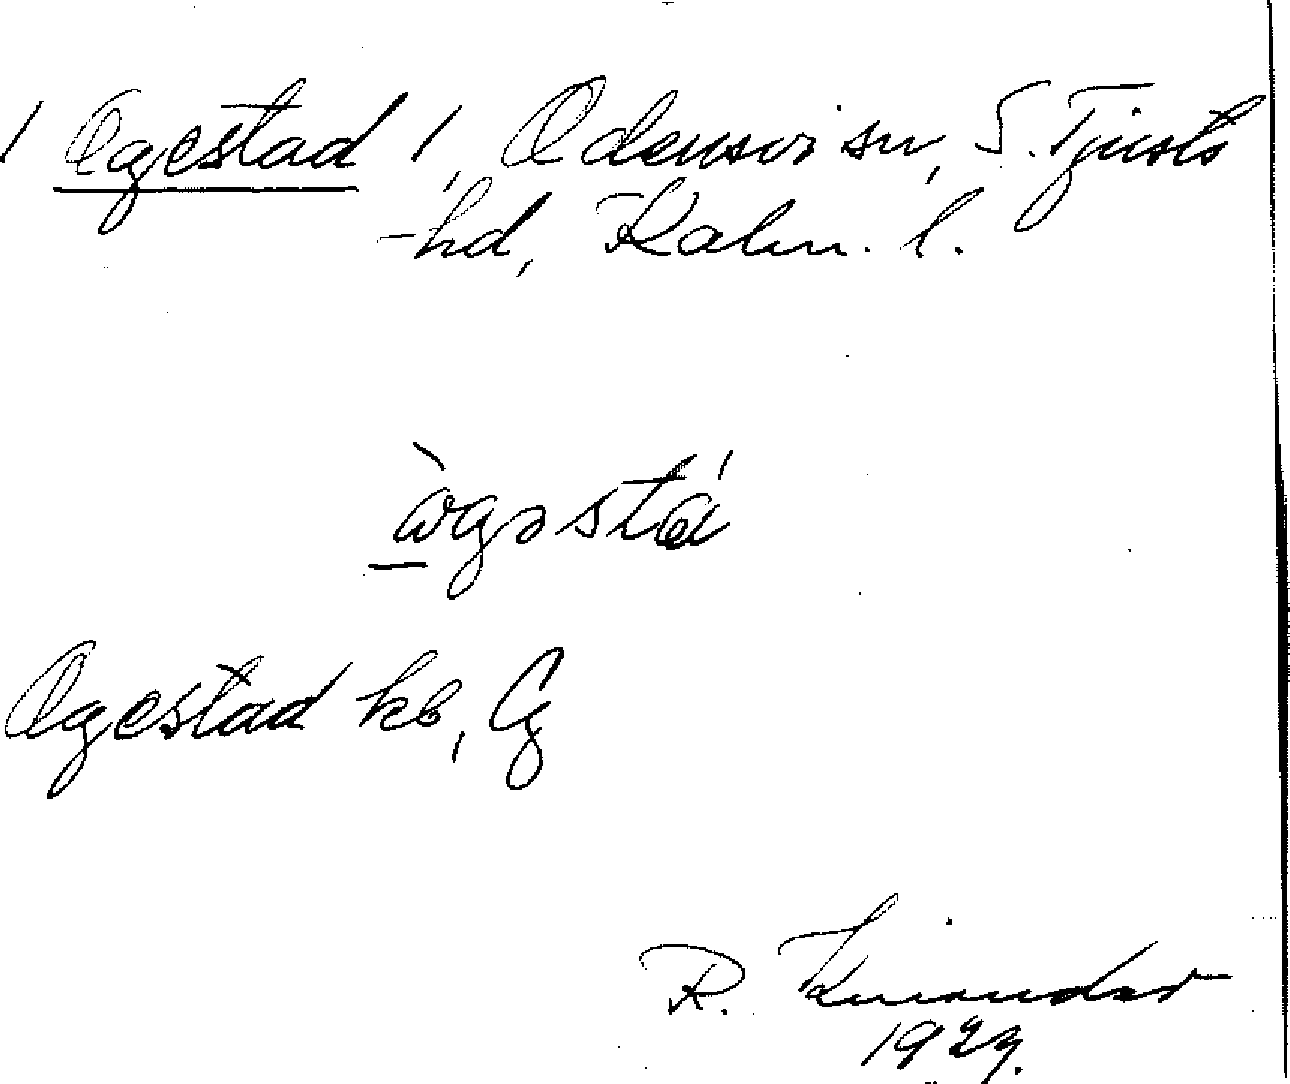 / Ogestad /, Odensvi sn, S. Tjusts
-hd, Kalm. l.
ògəstá
Ogestad kb, Cg
R. Kinander
1929.